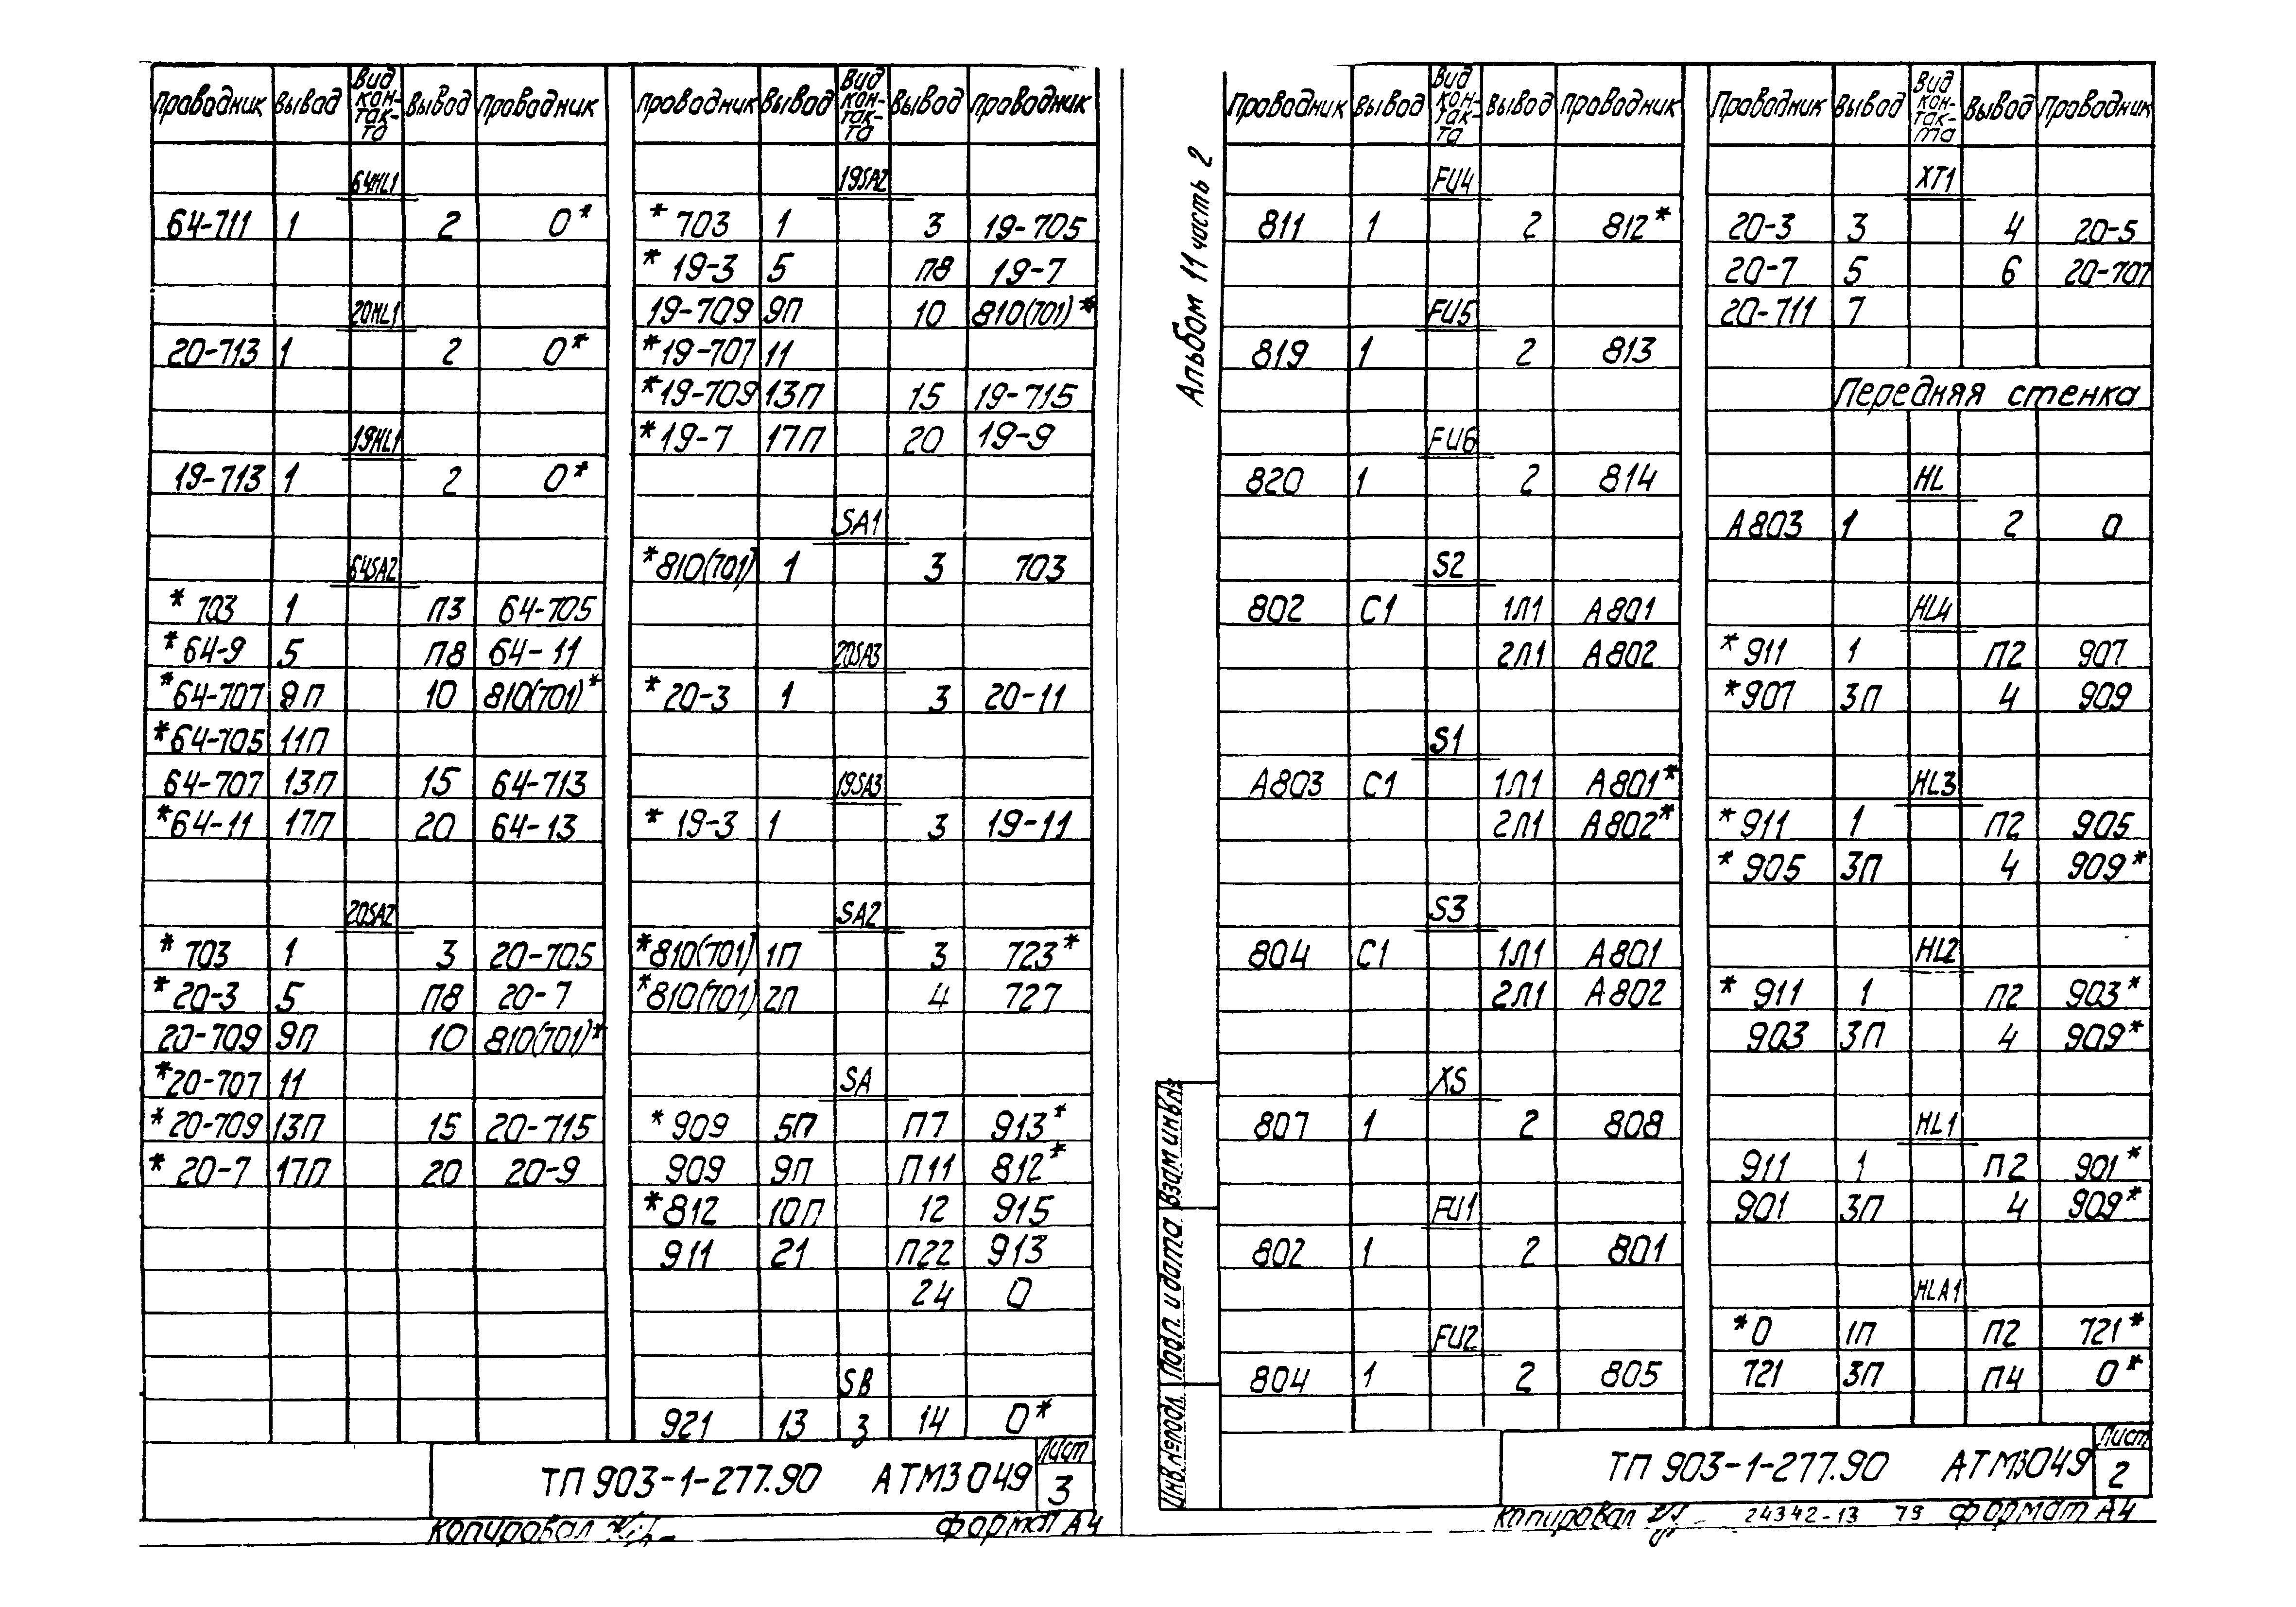 Проводник Вывод Вид кон-так-та Вывод Проводник
64HL1
64-711 1 2 0*
20HL1
20-713 1 2 0*
19HL1
19-713 1 2 0*
64SA2
*703 1 П3 64-705
*64-9 5 П8 64-11
*64-707 9П 10 810(701)*
*64-705 11П
64-707 13П 15 64-713
*64-11 17П 20 64-13
20SA2
*703 1 3 20-705
*20-3 5 П8 20-7
20-709 9П 10 810(701)*
*20-707 11
*20-709 13П 15 20-715
*20-7 17П 20 20-9
Проводник Вывод Вид кон-так-та Вывод Проводник
19SA2
*703 1 3 19-705
*19-3 5 П8 19-7
19-709 9П 10 810(701)*
*19-707 11
*19-709 13П 15 19-715
*19-7 17П 20 19-9
SA1
*810(701) 1 3 703
20SA3
*20-3 1 3 20-11
19SA3
*19-3 1 3 19-11
SA2
*810(701) 1П 3 723*
*810(701) 2П 4 727
SA
*909 5П П7 913*
909 9П П11 812*
*812 10П 12 915
911 21 П22 913
24 0
SB
921 13 3 14 0*
ТП 903-1-277.90 АТМ3 049
Лист
3
Копировал
формат А4
Альбом 11 часть 2
Проводник Вывод Вид кон-так-та Вывод Проводник
FU4
811 1 2 812*
FU5
819 1 2 813
FU6
820 1 2 814
S2
802 С1 1Л1 А801
2Л1 А802
S1
А803 С1 1Л1 А801*
2Л1 А802*
S3
804 С1 1Л1 А801
2Л1 А802
XS
807 1 2 808
FU1
802 1 2 801
FU2
804 1 2 805
Проводник Вывод Вид кон-так-та Вывод Проводник
XT1
20-3 3 4 20-5
20-7 5 6 20-707
20-711 7
Передняя стенка
HL
А803 1 2 0
HL4
*911 1 П2 907
*907 3П 4 909
HL3
*911 1 П2 905
*905 3П 4 909*
HL2
*911 1 П2 903*
903 3П 4 909*
HL1
911 1 П2 901*
901 3П 4 909*
HLA1
*0 1П П2 721*
721 3П П4 0*
Инв.№подл. Подп. и дата Взам инв.№
ТП 903-1-277.90 АТМ3 049
Лист
2
Копировал
24342-13 79 формат А4